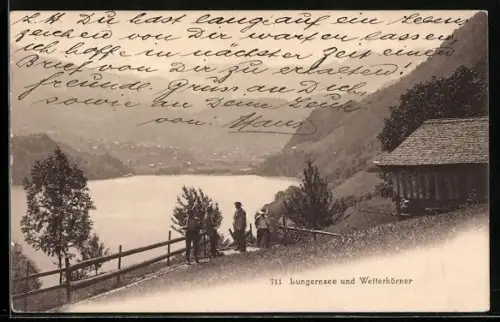 L. H. Du hast lange auf ein Lebens
zeichen von Dir warten lassen
ich hoffe in nächster Zeit einen
Brief von Dir zu erhalten
freundl. Gruss an Dich
sowie an Deine Leute
von: Hans
711 Lungernsee und Wetterhörner